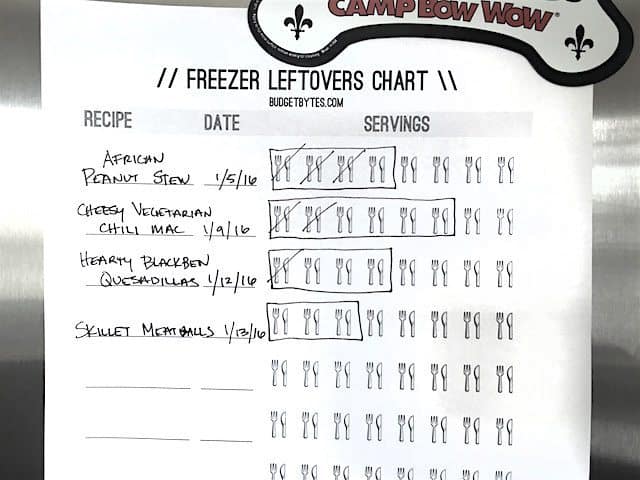 CAMP BOW WOW®
// FREEZER LEFTOVERS CHART \\
BUDGETBYTES.COM
RECIPE DATE SERVINGS
AFRICAN
PEANUT STEW 1/5/16
CHEESY VEGETARIAN
CHILI MAC 1/9/16
HEARTY BLACKBEN
QUESADILLAS 1/12/16
SKILLET MEATBALLS 1/13/16